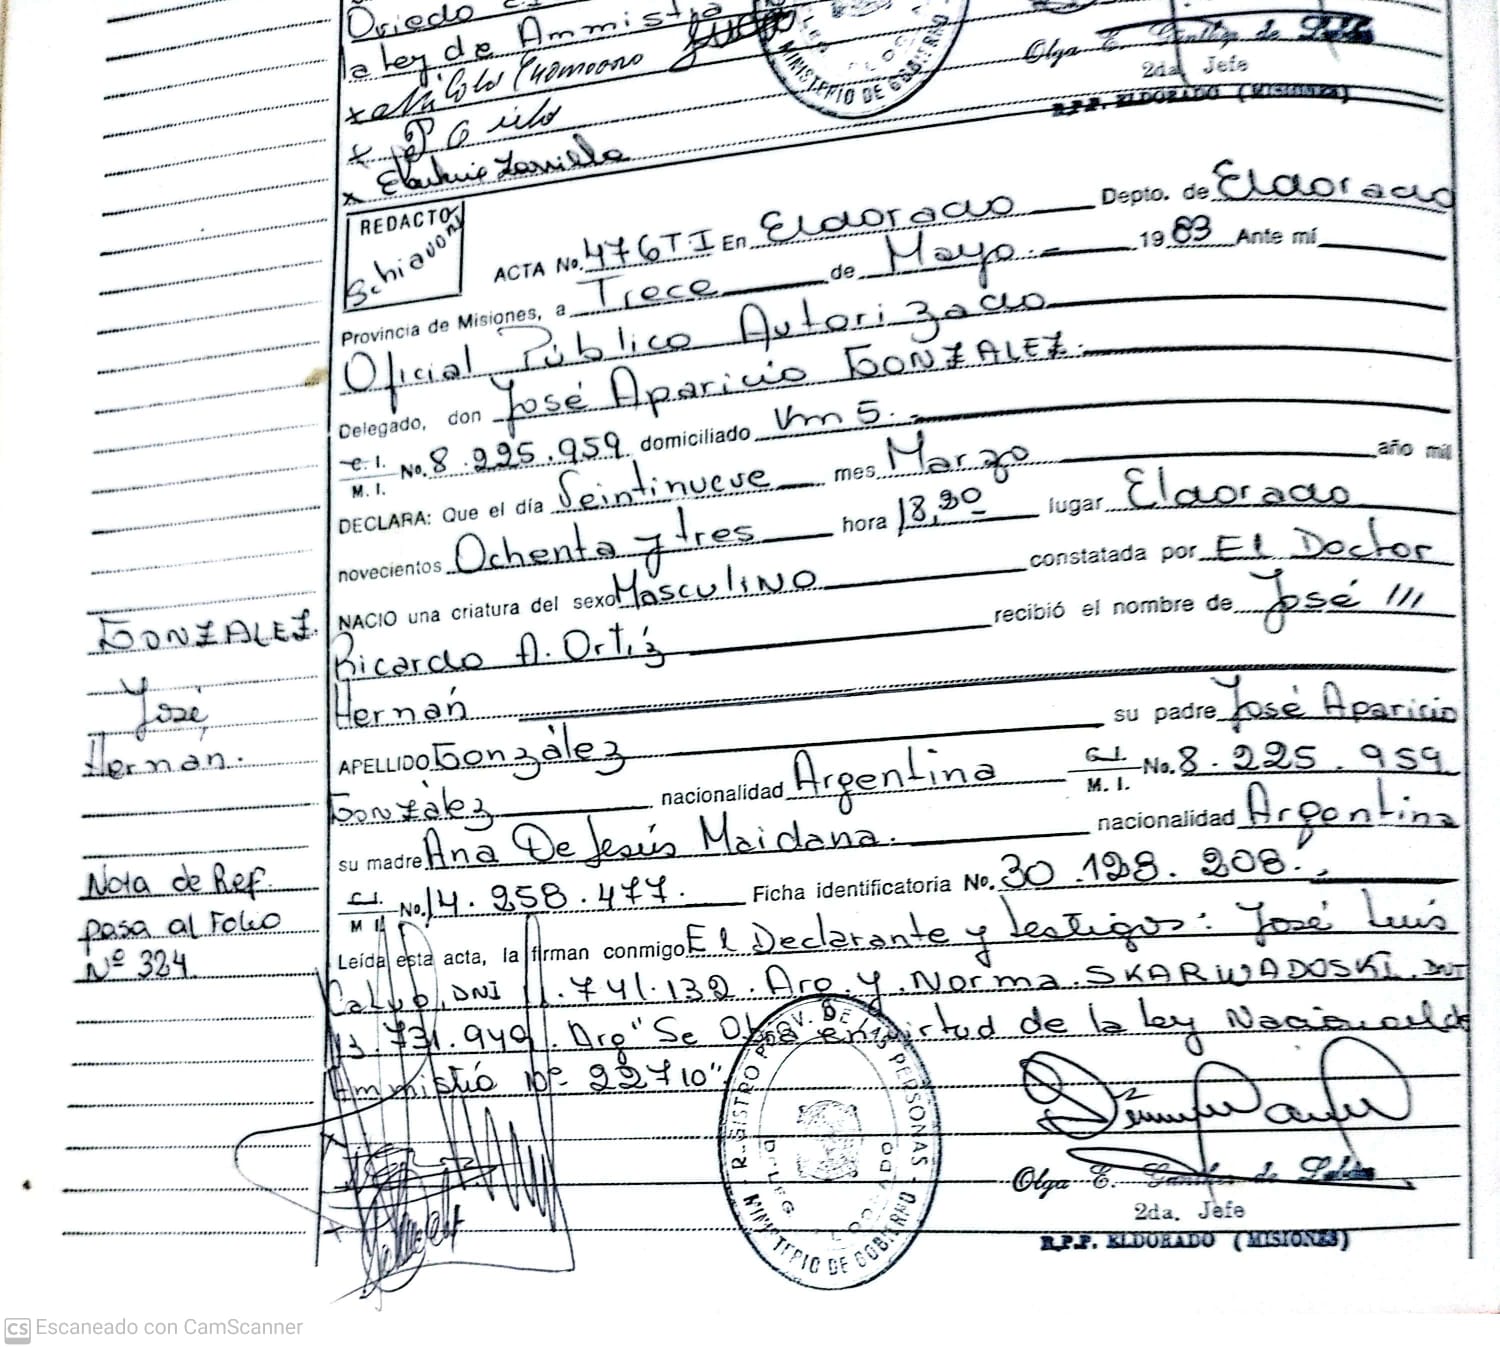 Oviedo
la Ley de Ammistía
MINISTERIO DE GOBIERNO
Olga E. Günther de
2da. Jefe
R.P.P. ELDORADO (MISIONES)
REDACTO
Schiavoni
ACTA No. 476TI En Eldorado Depto. de Eldorado
Provincia de Misiones, a Trece de Mayo.- 1983 Ante mí
Oficial Público Autorizado
Delegado, don José Aparicio GONZALEZ.
C. I.
M. I. No. 8.225.959 domiciliado Km 5.-
DECLARA: Que el día Veintinueve mes Marzo año mil
novecientos Ochenta y tres hora 18,30 lugar Eldorado
NACIO una criatura del sexo Masculino constatada por El Doctor
Ricardo A. Ortíz recibió el nombre de José ///
Hernán
APELLIDO González su padre José Aparicio
González nacionalidad Argentina C.I.
M. I. No. 8.225.959
su madre Ana De Jesús Maidana. nacionalidad Argentina
C.I.
M I No. 14.258.477. Ficha identificatoria No. 30.128.208.-
Leída esta acta, la firman conmigo El Declarante y testigos: José Luís
DNI .741.132. Arg. y. Norma. SKARWADOSKI. DNI
13.731.949. Arg "Se Obra en virtud de la Ley Nacional de
Ammistió nº 22710"
GONZALEZ.
José
Hernan.
Nota de Ref.
pasa al Folio
Nº 324.
REGISTRO PROV. DE LAS PERSONAS
MINISTERIO DE GOBIERNO
DELEG ELDORADO
Olga E. Günther de
2da. Jefe
R.P.P. ELDORADO (MISIONES)
CS Escaneado con CamScanner